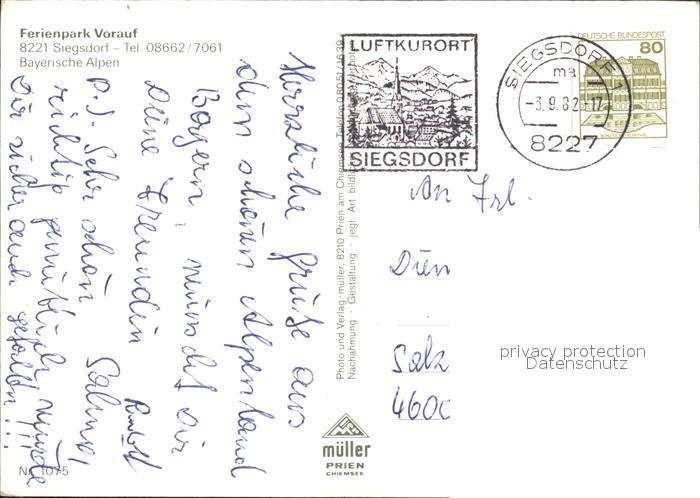 Ferienpark Vorauf
8221 Siegsdorf – Tel. 08662/7061
Bayerische Alpen
Herzliche Grüße aus
dem schönen Alpenland
Bayern, wünscht Dir
Deine Freundin
P.S. Sehr schön
richtig gemütlich würde
Dir sicher auch gefallen!!!
Nr. 1075
Photo und Verlag: müller, 8210 Prien am Chiemsee, Telefon 08051/
Nachahmung · Gestaltung · jegl. Art
müller
PRIEN
CHIEMSEE
LUFTKURORT
SIEGSDORF
SIEGSDORF 1
ma
-3.9.82-17
8227
DEUTSCHE BUNDESPOST
80
An Frl.
Dien
Salz
4600
privacy protection
Datenschutz